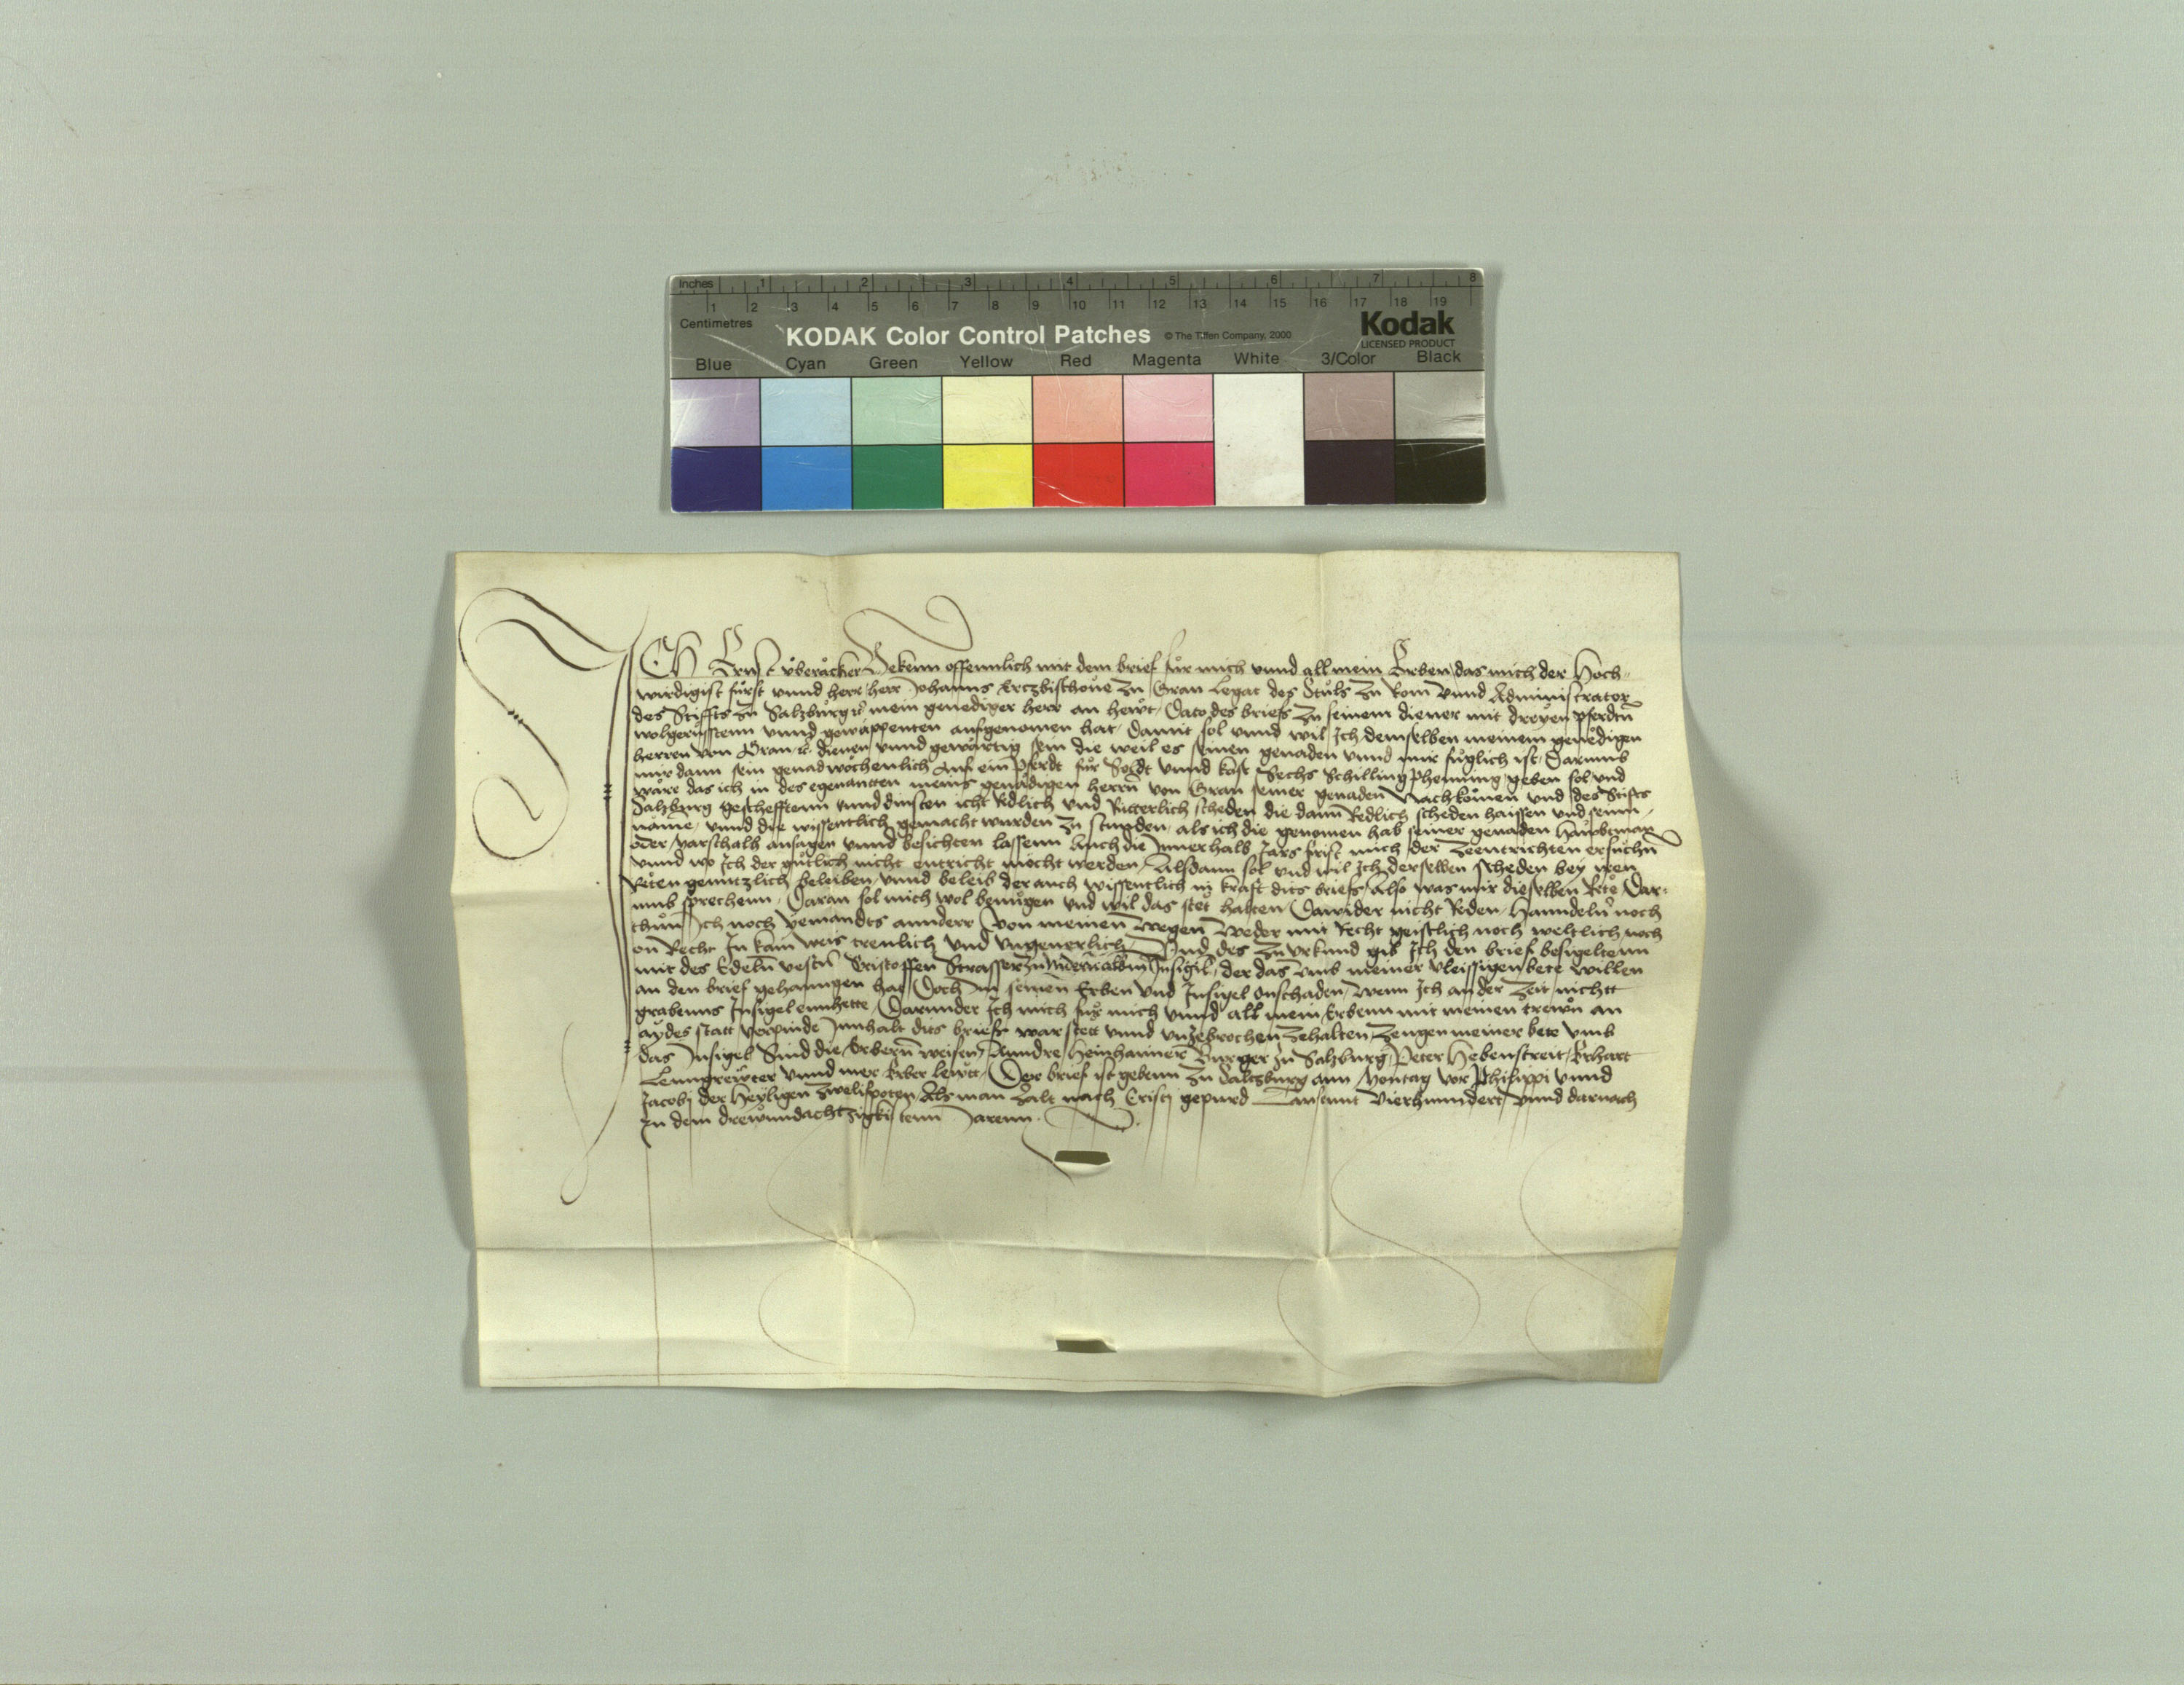 Inches 1 2 3 4 5 6 7 8
1 2 3 4 5 6 7 8 9 10 11 12 13 14 15 16 17 18 19
Centimetres
KODAK Color Control Patches © The Tiffen Company, 2000 Kodak
LICENSED PRODUCT
Blue Cyan Green Yellow Red Magenta White 3/Color Black
ICH Ernst vberäcker Bekenn offennlich mit dem brief für mich vnnd all mein Erben das mich der Hoch-
wirdigist fürst vnnd herr herr Johanns Erczbischoue zu Gran Legat des Stuls zu Rom vnnd Administrator
des Stiffts zu Salzburg rc mein genediger herr an hewt Dato des briefs zu seinem diener mit dreyen pferdtn
wolgerüsstenn vnnd gewappenten aufgenomen hat Damit sol vnnd wil Ich demselben meinem genedigen
herren von Gran rc dienen vnnd gewärtig sein die weil es seinen genaden vnnd mir füglich ist Darumb
mir dann sein genad wochenlich auf ein Pferdt für Soldt vnnd kost Sechs Schilling phenning geben sol vnd
wäre das ich in des egenantten meins genädigen herrn von Gran seiner genaden Nachkomen vnd des Stifts
Salzburg geschefftenn vnnd dinsten icht Redlich vnd Ritterlich scheden die dann Redlich scheden haissen vnd sein
näme vnnd die wissentlich gemacht wurden zu stunden als ich die genomen hab seiner genaden Haubtman
oder Marschalh ansagen vnnd besichten lassenn Auch die Innerhalb Jars frist mich der zeentrichten ersuchn
vnnd wo Ich der gütlich nicht entricht möcht werden Alsdann sol vnd wil Ich derselben scheden bey iren
Reten genntzlich beleiben vnnd beleib der auch wissentlich in kraft dits briefs Also was mir dieselben Rete Dar-
umb sprechenn Daran sol mich wol benügen vnd wil das stet halten Dawider nicht Reden Hanndeln noch
thun Ich noch yemandts annderr von meinen wegen weder mit Recht geistlich noch weltlich noch
on Recht In kain weis treulich vnd vngeuerlich Vnd des zu vrkund gib Ich den brief besigeltenn
mit des Edeln vestn Cristoffen Strasser zu Nidernalbm Insigil der das vmb meiner vleissigen bete willen
an den brief gehanngen hat Doch im seinen Erben vnd Insigel onschaden wenn Ich an der zeit nichtt
grabenns Insigel ennhette Darunder Ich mich für mich vnnd all mein Erbenn mit meinen trewn an
aydes statt verpinde Innhalt dits briefs war stett vnnd vnzebrochen zehalten Zeugen meiner bete vmb
das Insigel Sind die Erbern weisen Anndre Heinhaimer Burger zu Salzburg Peter Hebenstreit Erhart
Lenngrewter vnnd mer Erber lewtt Der brief ist gebenn zu Saltzburg am Montag vor Philippi vnnd
Jacobi der Heyligen zwelifpoten Als man zalt nach Cristi gepurd Tausennt Vierhunndert vnnd darnach
In dem drewundachtzigkistenn Jarenn